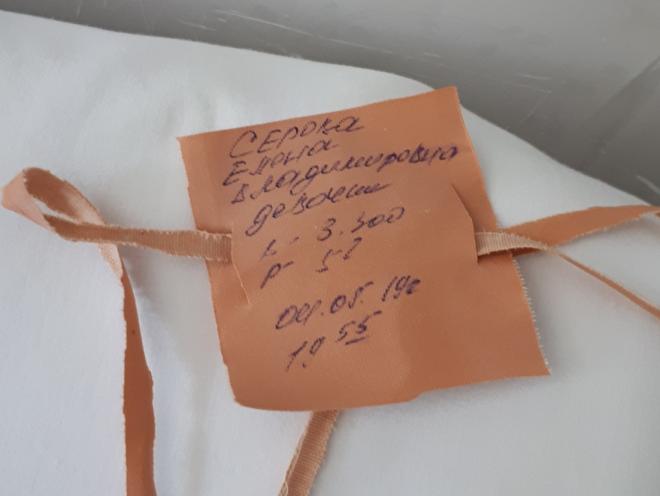 СЕРОВА
Елена
Владимировна
девочка
в- 3.300
р- 52
04.05.19г
19 55